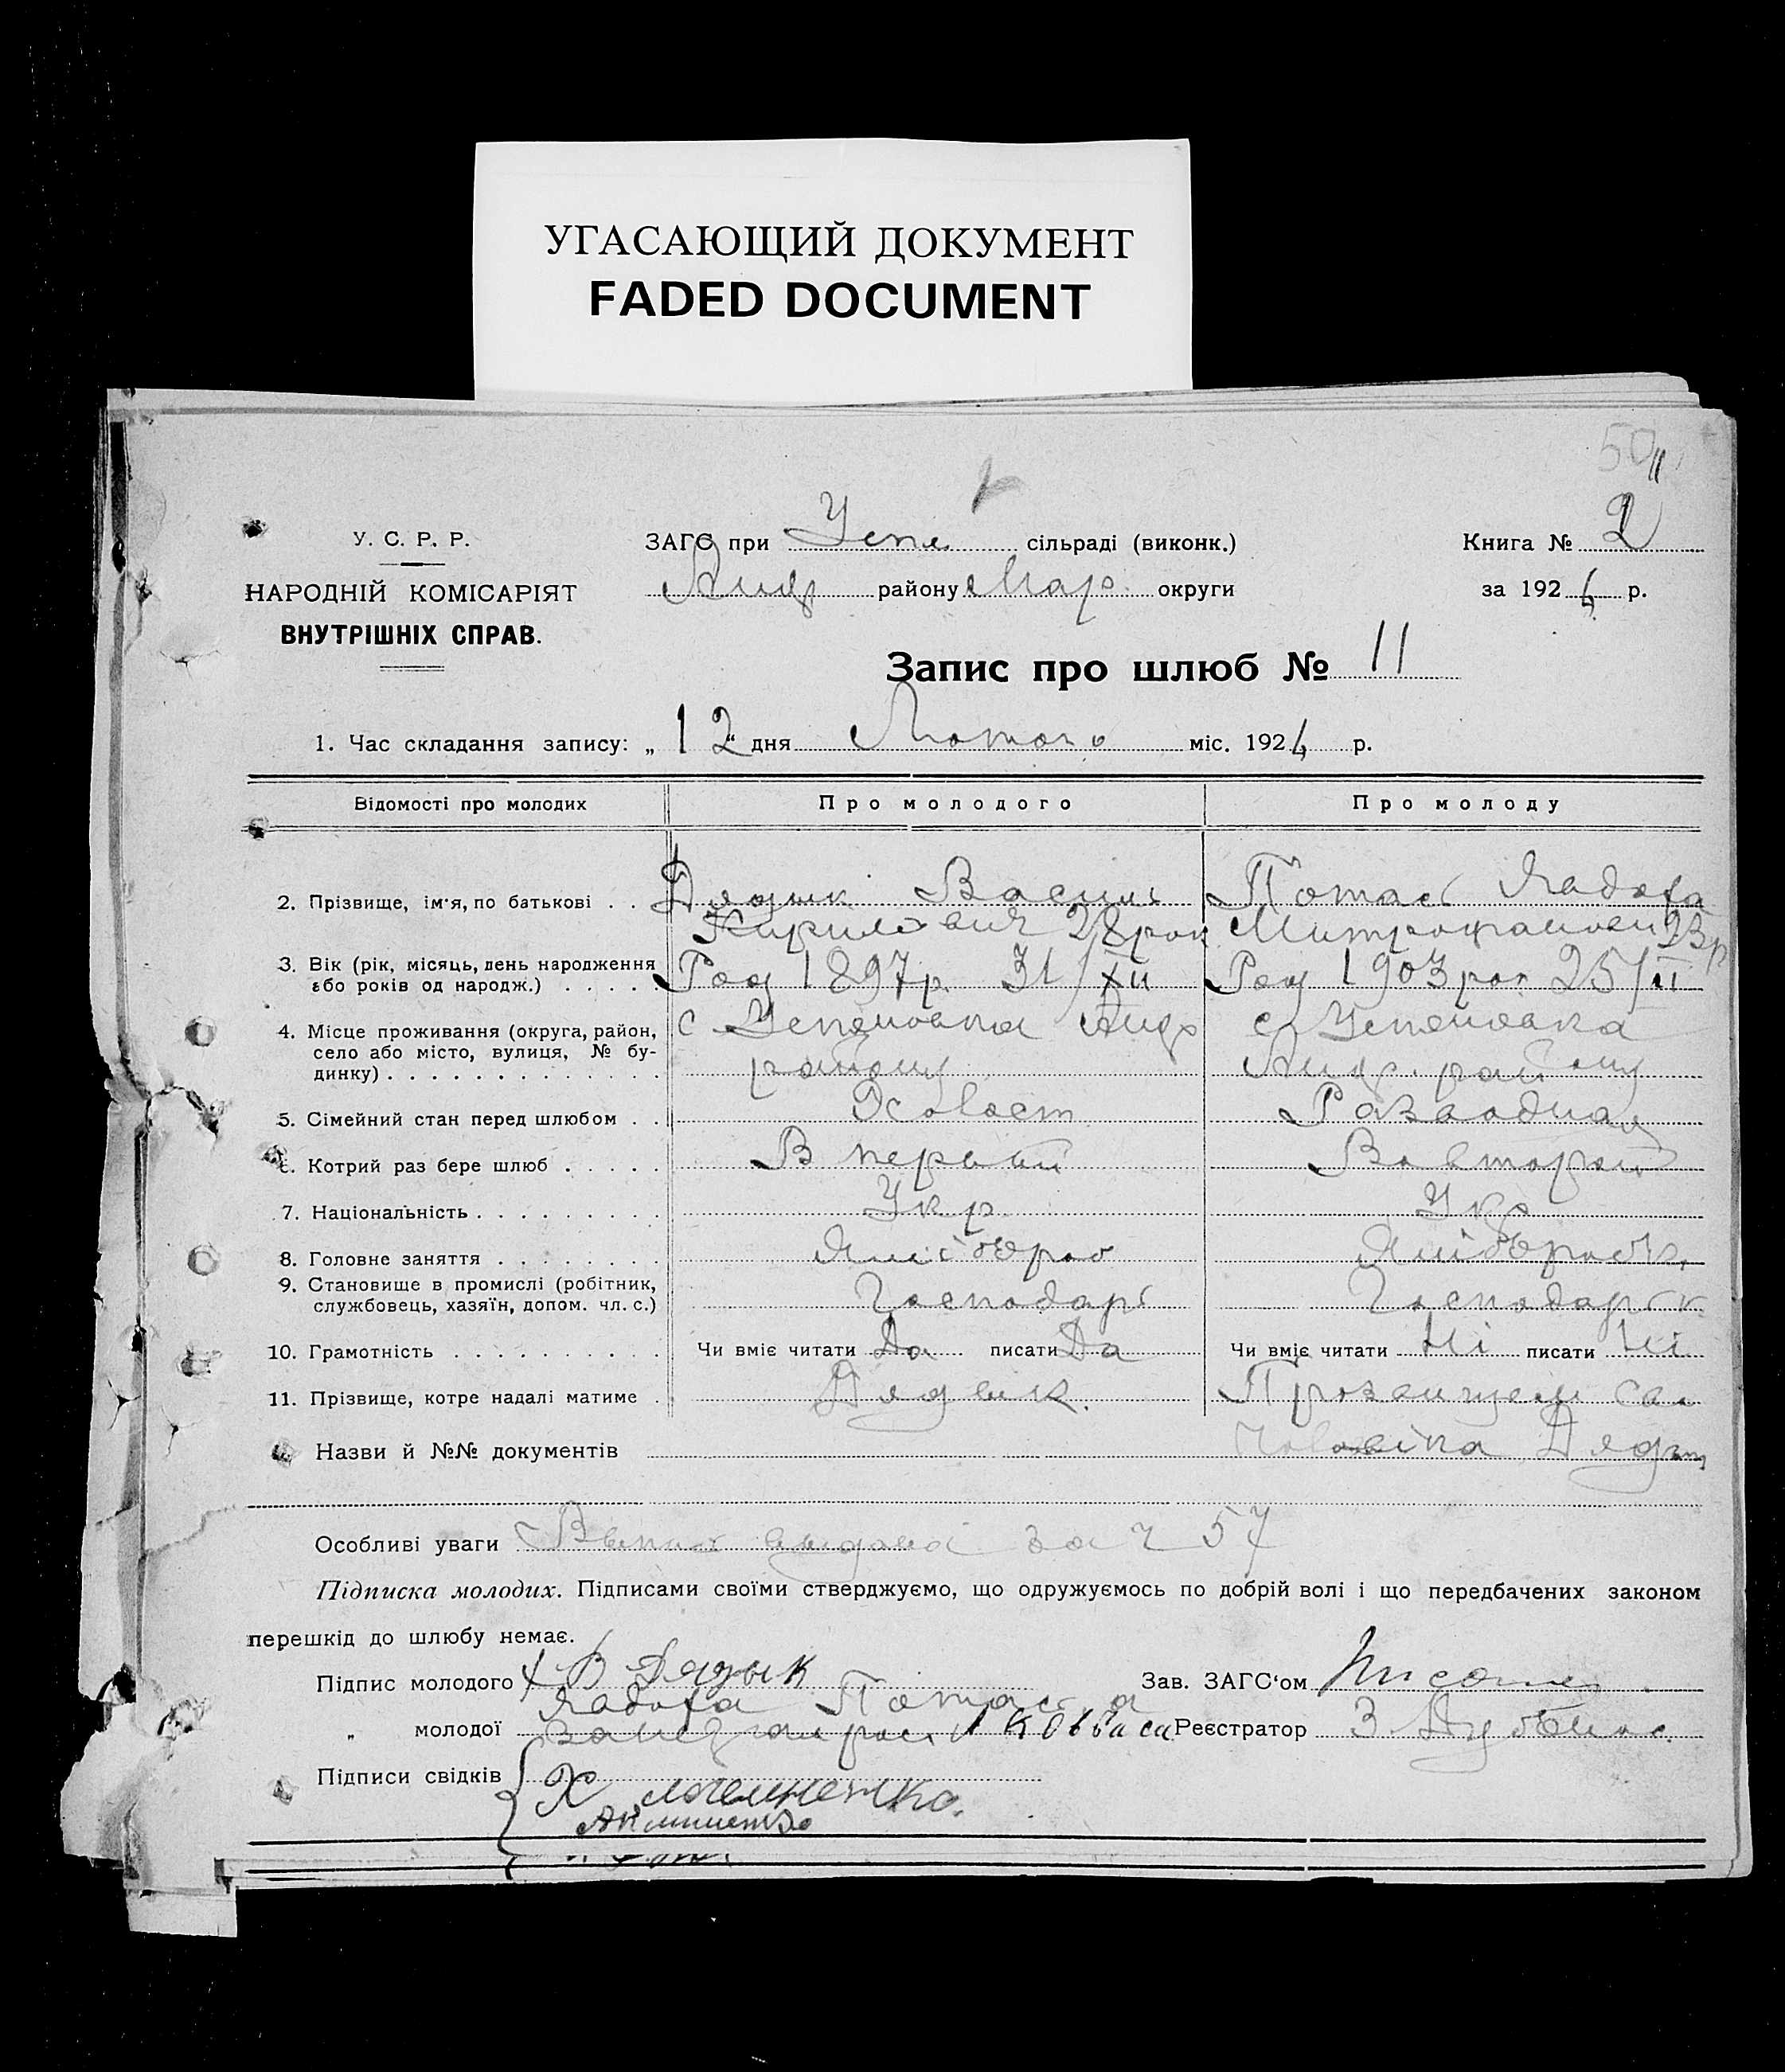 УГАСАЮЩИЙ ДОКУМЕНТ
FADED DOCUMENT
50
11
У. С. Р. Р.
НАРОДНІЙ КОМІСАРІЯТ
ВНУТРІШНІХ СПРАВ.
ЗАГС при Успе. сільраді (виконк.)
району Мар. округи
Книга № 2
за 192 р.
Запис про шлюб № 11
1. Час складання запису: „12“ дня Лютого міс. 192 р.
Відомості про молодих
Про молодого
Про молоду
2. Прізвище, ім'я, по батькові . .
Дядык Василь
Кирилович 28 рок
Потась
23 р
3. Вік (рік, місяць, день народження або років од народж.) . . . . .
Род 1897 р. 31/XII
Род 1903 рок 25/II
4. Місце проживання (округа, район, село або місто, вулиця, № будинку) . . . . . . . . . . . . .
с Успеновка Андр
району
с Успеновка
Андр. району
5. Сімейний стан перед шлюбом . .
Холост
Разводная
6. Котрий раз бере шлюб . . . . .
В первый
Во второй
7. Національність . . . . . . . . .
Укр
Укр
8. Головне заняття . . . . . . . .
Хліборob
Хлібороbк.
9. Становище в промислі (робітник, службовець, хазяїн, допом. чл. с.)
Господарь
Господарьк
10. Грамотність . . . . . . . . . .
Чи вміє читати Да писати Да
Чи вміє читати Ні писати Ні
11. Прізвище, котре надалі матиме .
Дядык.
Чоловіка Дядык
Назви й №№ документів
Особливі уваги видана за ч 57
Підписка молодих. Підписами своїми стверджуємо, що одружуємось по добрій волі і що передбачених законом
перешкід до шлюбу немає.
Підпис молодого В Дядык
Зав. ЗАГС‘ом
„ молодої Потась а
Ковбаса
Реєстратор
Підписи свідків